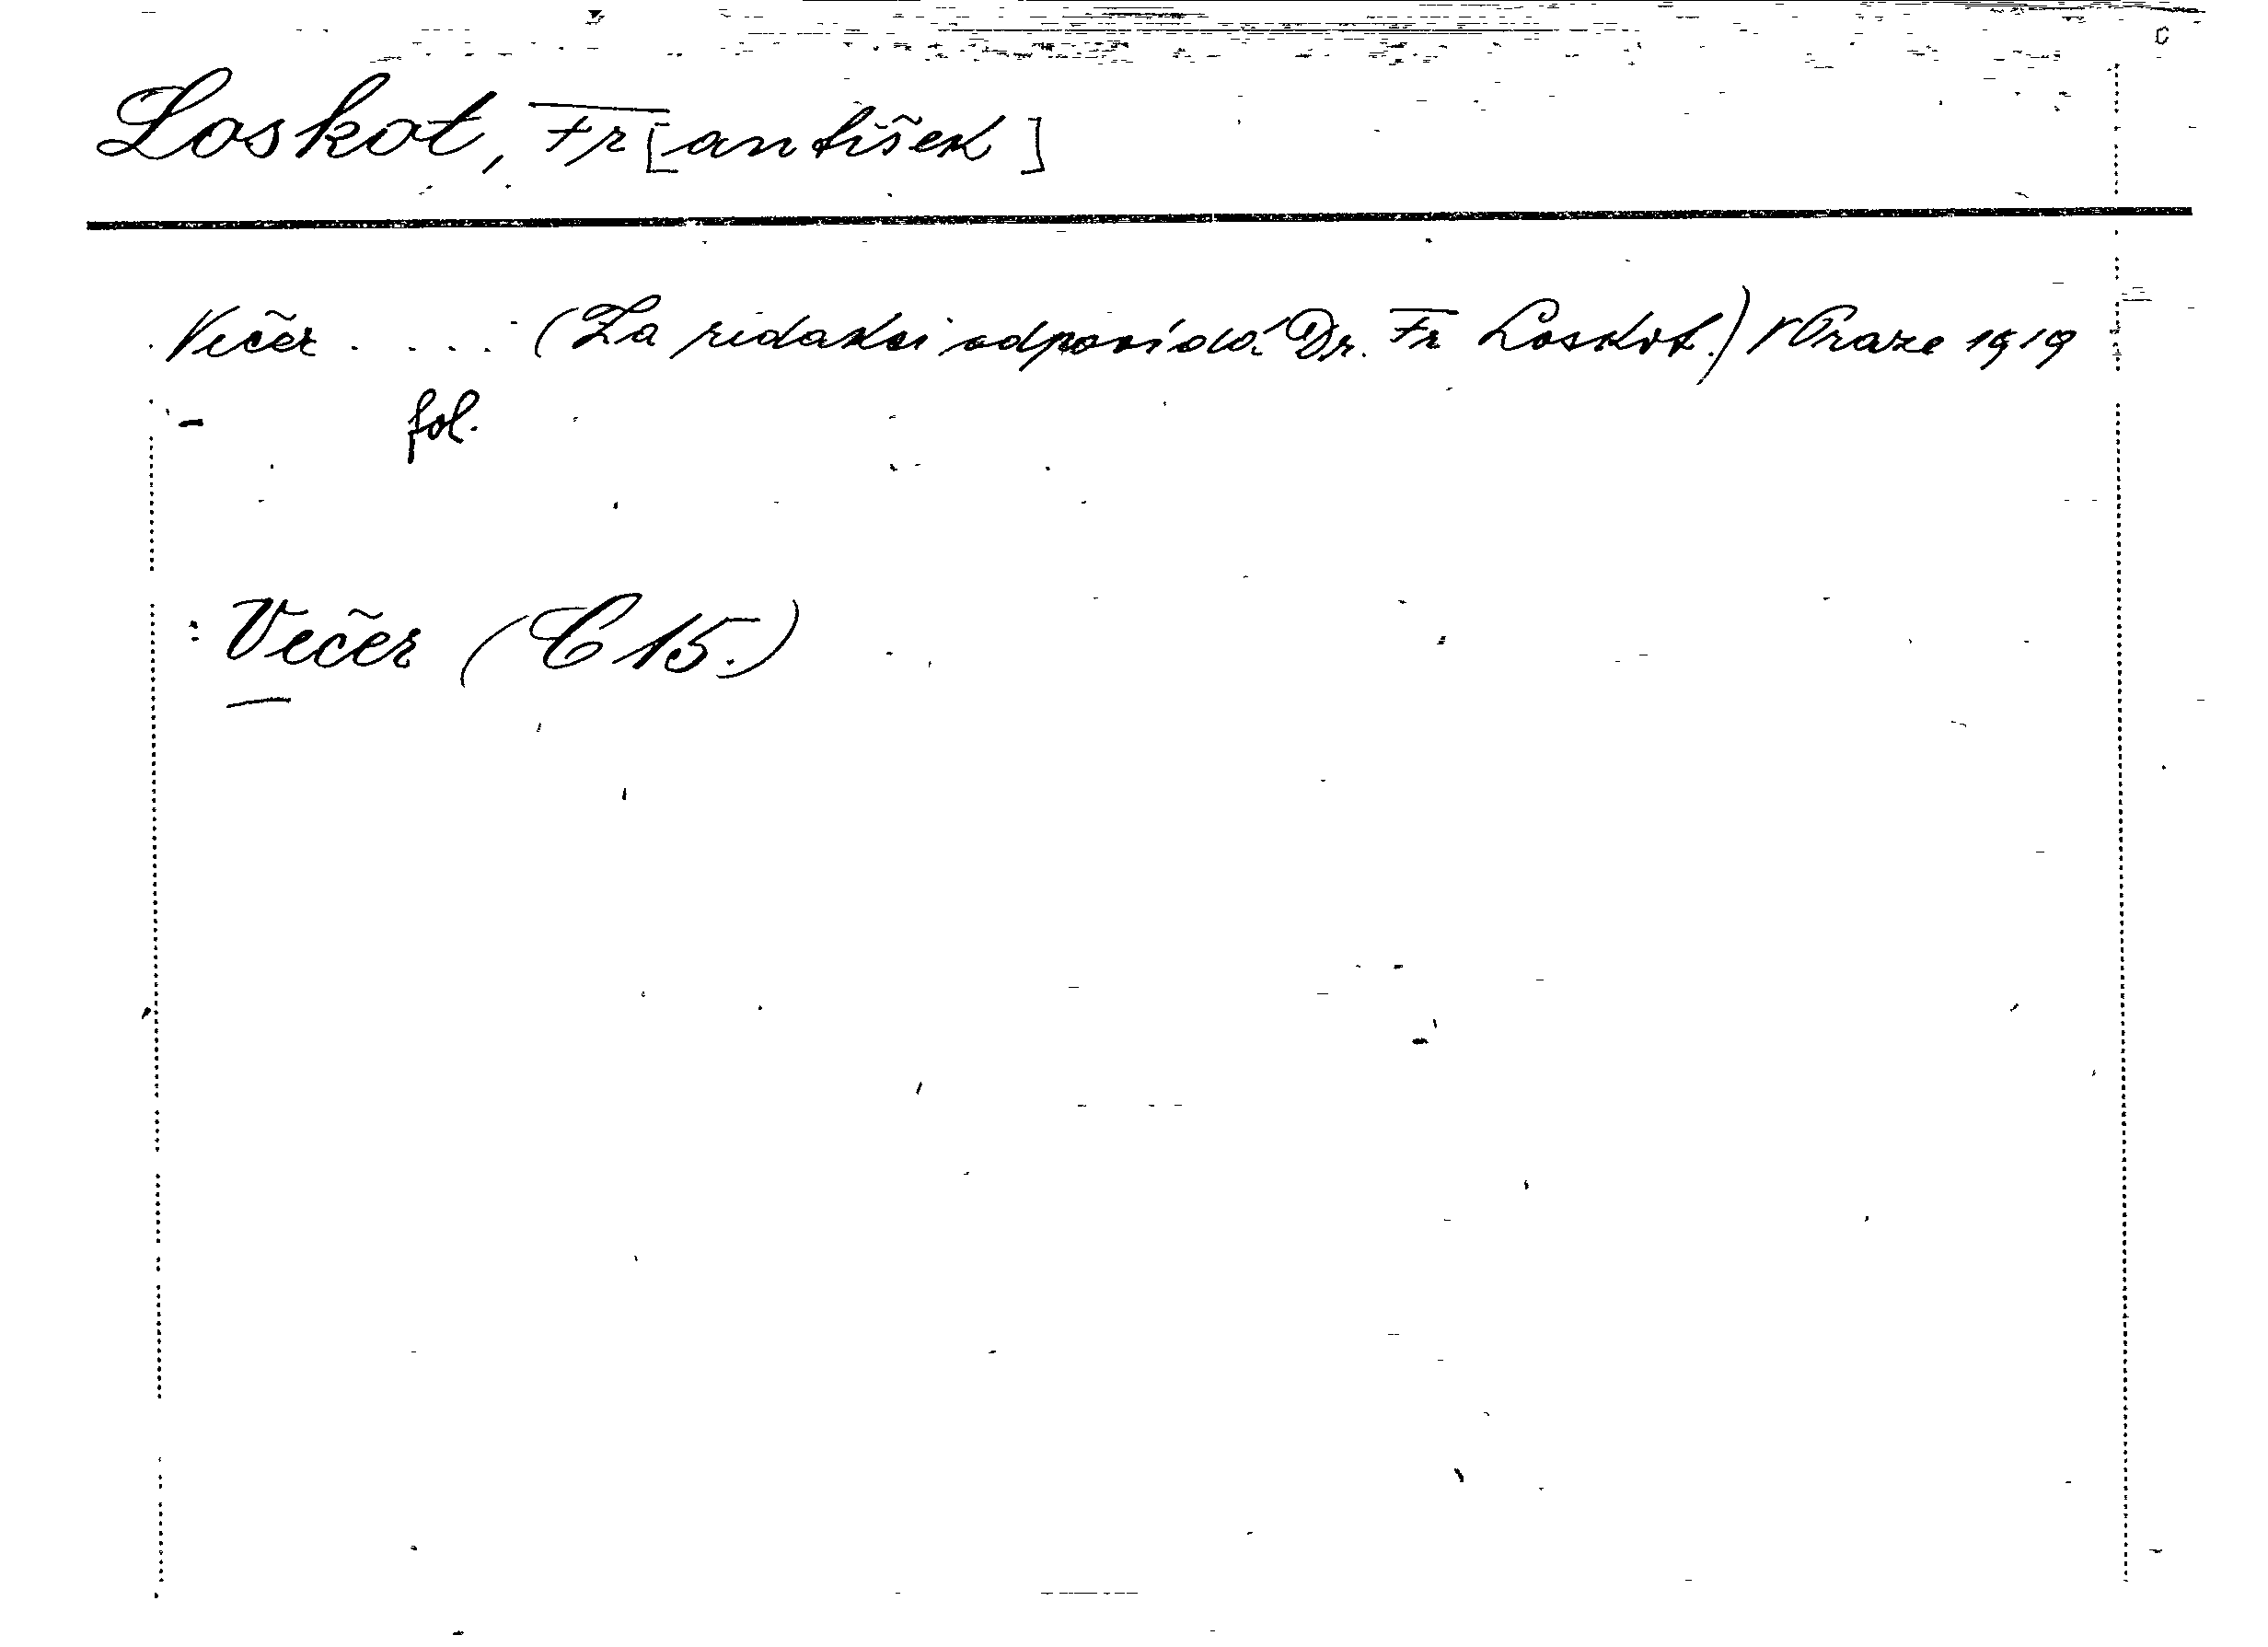 Loskot, Fr[antišek]
Večer ..... (Za redakci odpovídá Dr. Fr Loskot.) V Praze 1919
- fol.
: Večer (C 15.)